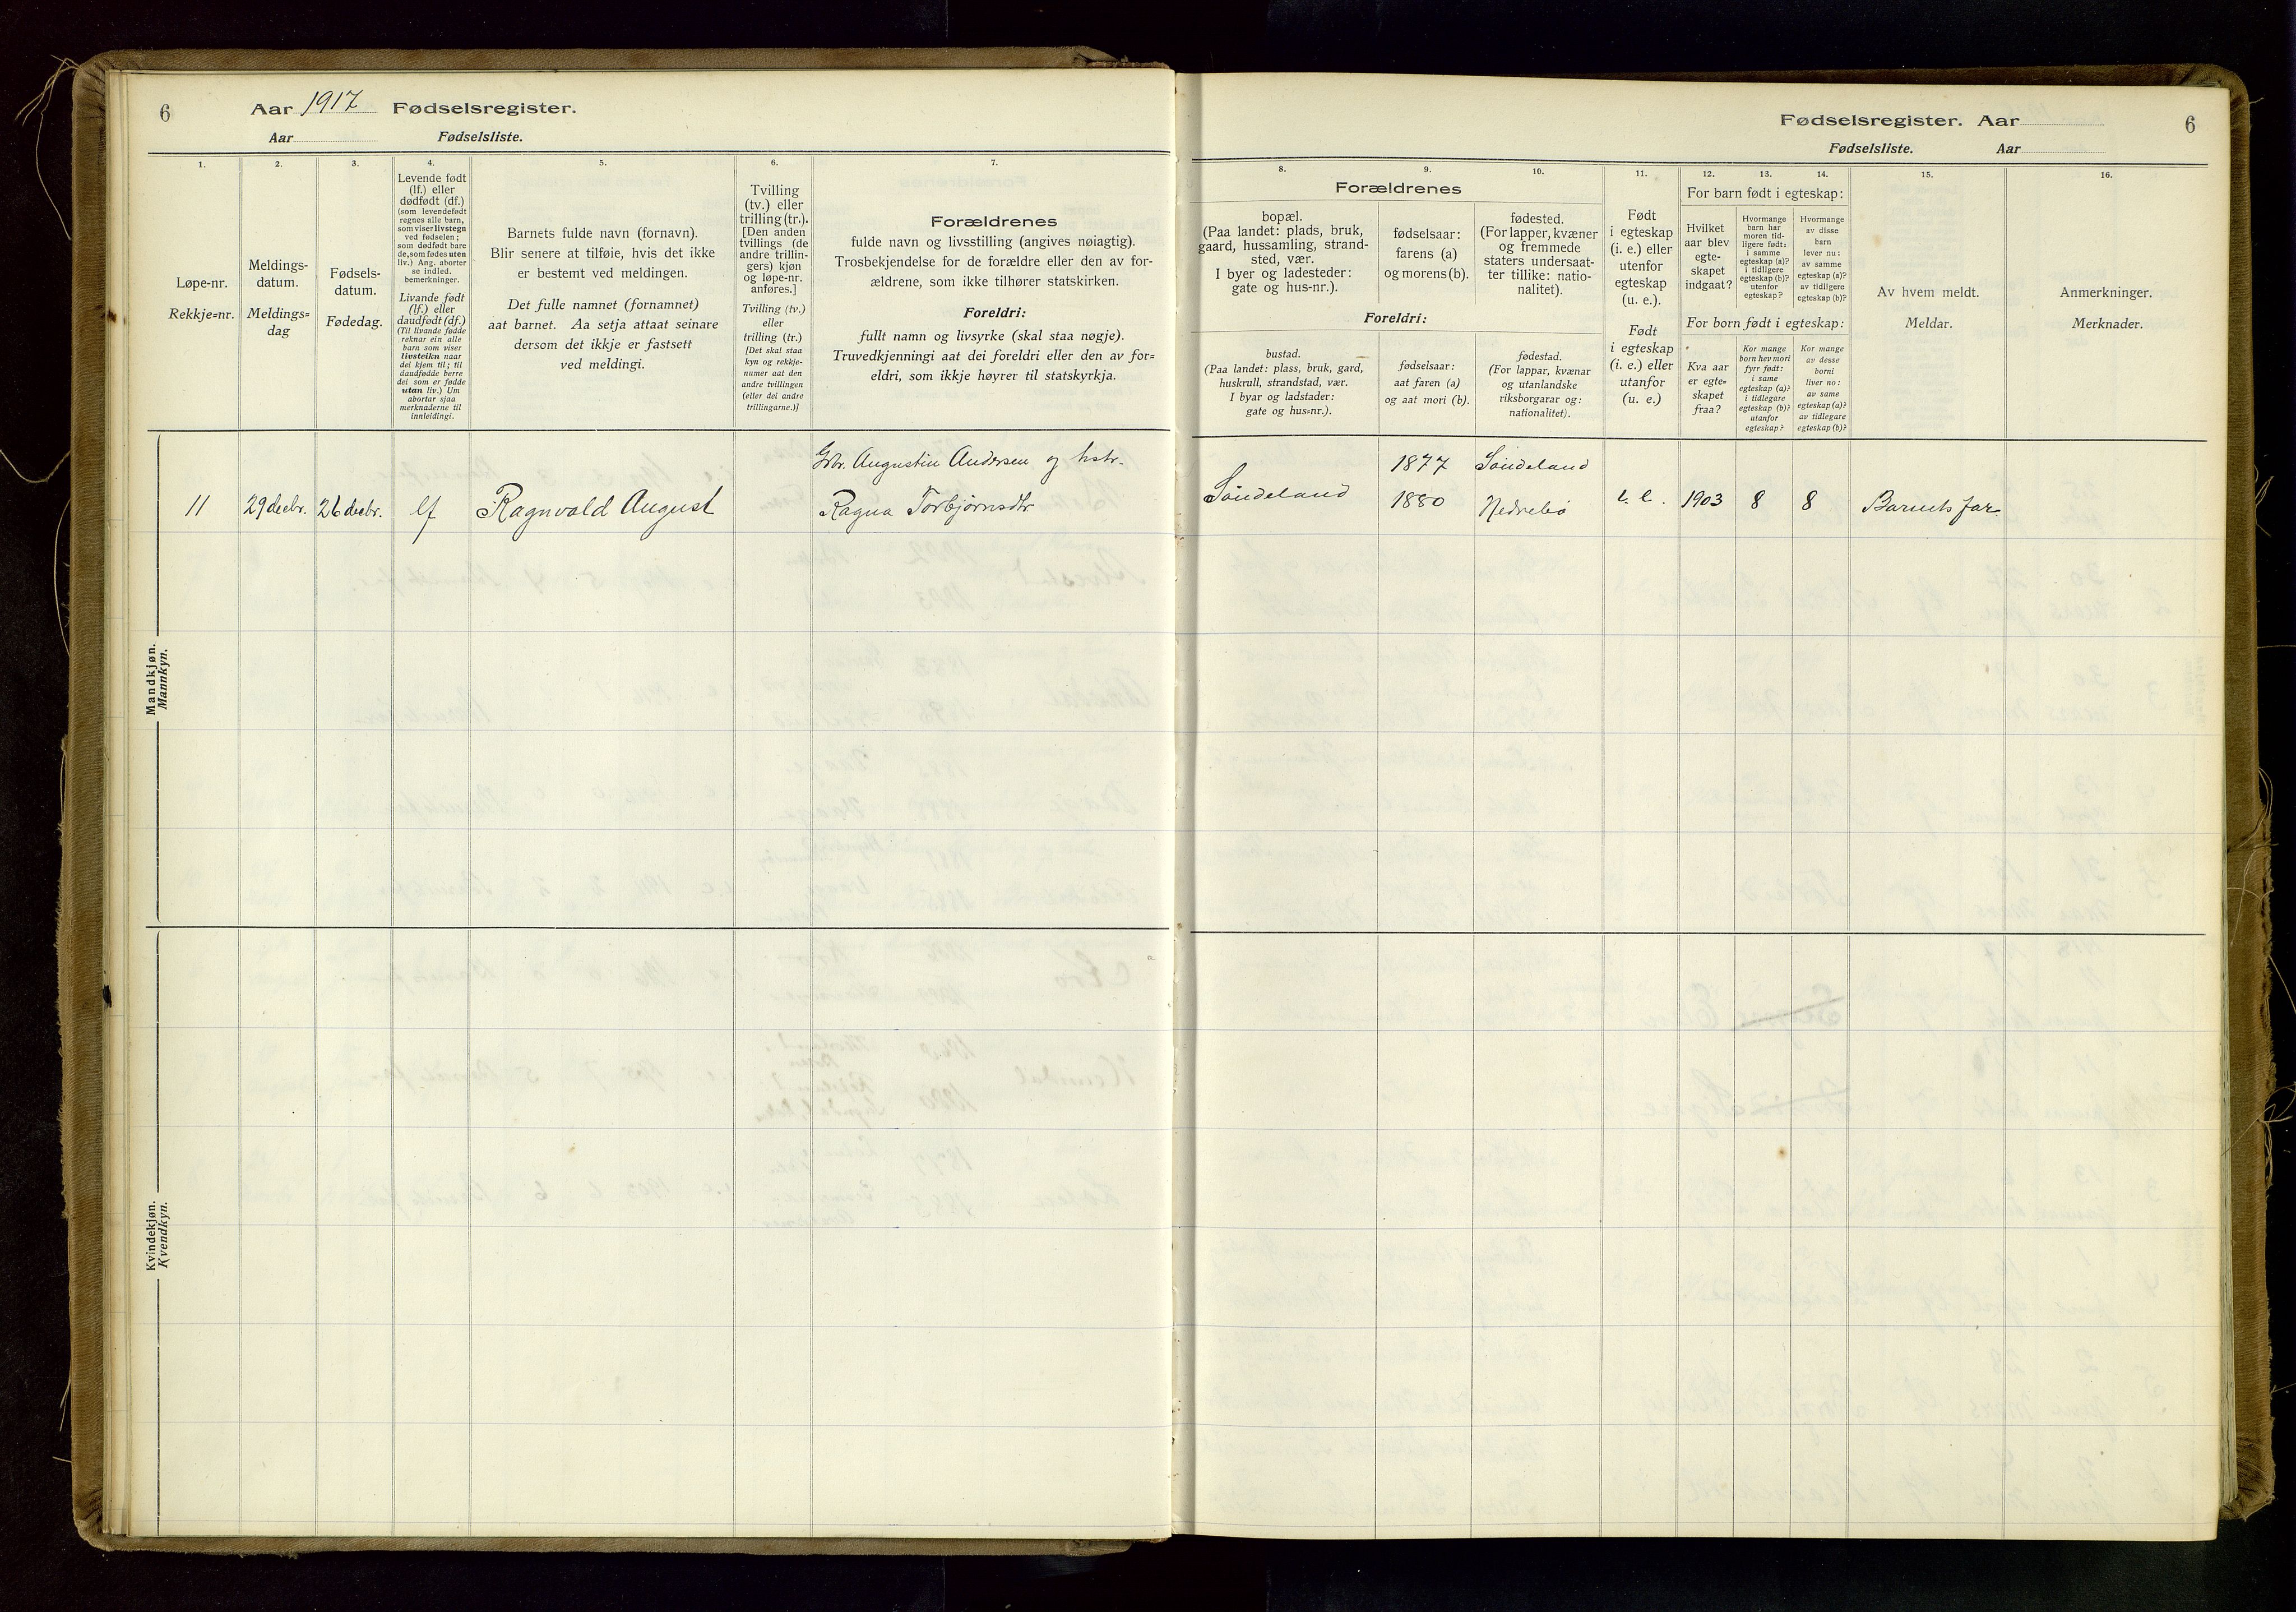 6
Aar 1917 Fødselsregister.
Aar Fødselsliste.
1.
Løpe-nr.
Rekkje=nr.
2.
Meldings-
datum.
Meldings=
dag
3.
Fødsels-
datum.
Fødedag.
4.
Levende født
(lf.) eller
dødfødt (df.)
(som levendefødt
regnes alle barn,
som viser livstegn
ved fødselen;
som dødfødt bare
de, som fødes uten
liv.) Ang. aborter
se indled.
bemerkninger.
Livande født
(lf.) eller
daudfødt (df.)
(Til livande fødde
reknar ein alle
barn som viser
livsteikn naar
dei kjem til; til
daudfødde berre
dei som er fødde
utan liv.) Um
abortar sjaa
merknaderne til
innleidingi.
5.
Barnets fulde navn (fornavn).
Blir senere at tilføie, hvis det ikke
er bestemt ved meldingen.
Det fulle namnet (fornamnet)
aat barnet. Aa setja attaat seinare
dersom det ikkje er fastsett
ved meldingi.
6.
Tvilling
(tv.) eller
trilling (tr.).
[Den anden
tvillings (de
andre trillin-
gers) kjøn
og løpe-nr.
anføres.]
Tvilling (tv.)
eller
trilling (tr.)
[Det skal staa
kyn og rekkje-
numer aat den
andre tvillingen
(eller dei andre
trillingarne.)]
7.
Forældrenes
fulde navn og livsstilling (angives nøiagtig).
Trosbekjendelse for de forældre eller den av for-
ældrene, som ikke tilhører statskirken.
Foreldri:
fullt namn og livsyrke (skal staa nøgje).
Truvedkjenningi aat dei foreldri eller den av for=
eldri, som ikkje høyrer til statskyrkja.
Mandkjøn.
Mannkyn.
11 29 decbr. 26 decbr. lf Ragnvald August
Grbr. Augustin Andersen og hstr.
Ragna Torbjørnsdtr
Kvindekjøn.
Kvendkyn.
Fødselsregister. Aar
6
Fødselsliste. Aar
8.
Forældrenes
bopæl.
(Paa landet: plads, bruk,
gaard, hussamling, strand-
sted, vær.
I byer og ladesteder:
gate og hus-nr.).
Foreldri:
bustad.
(Paa landet: plass, bruk, gard,
huskrull, strandstad, vær.
I byar og ladstader:
gate og hus=nr.).
9.
fødselsaar:
farens (a)
og morens (b).
fødselsaar:
aat faren (a)
og aat mori (b).
10.
fødested.
(For lapper, kvæner
og fremmede
staters undersaat-
ter tillike: natio-
nalitet).
fødestad.
(For lappar, kvænar
og utanlandske
riksborgarar og:
nationalitet).
11.
Født
i egteskap
(i. e.) eller
utenfor
egteskap
(u. e.).
Født
i egteskap
(i. e.) eller
utanfor
(u. e.)
12.
For barn født i egteskap:
Hvilket
aar blev
egte-
skapet
indgaat?
For born født i egteskap:
Kva aar
er egte=
skapet
fraa?
13.
Hvormange
barn har
moren tid-
ligere født:
i samme
egteskap (a)?
i tidligere
egteskap (b)?
utenfor
egteskap?
Kor mange
born hev mori
fyrr født:
i same
egteskap (a)?
i tidlegare
egteskap (b)?
utanfor
egteskap?
14.
Hvormange
av disse
barn
lever nu:
av samme
egteskap (a)?
av tidligere
egteskap (b)?
Kor mange
av desse
borni
liver no:
av same
egteskap (a)?
av tidlegare
egteskap (b)?
15.
Av hvem meldt.
Meldar.
16.
Anmerkninger.
Merknader.
1877 Söndeland
Söndeland 1880 Nedrebö i. e. 1903 8 8 Barnets far